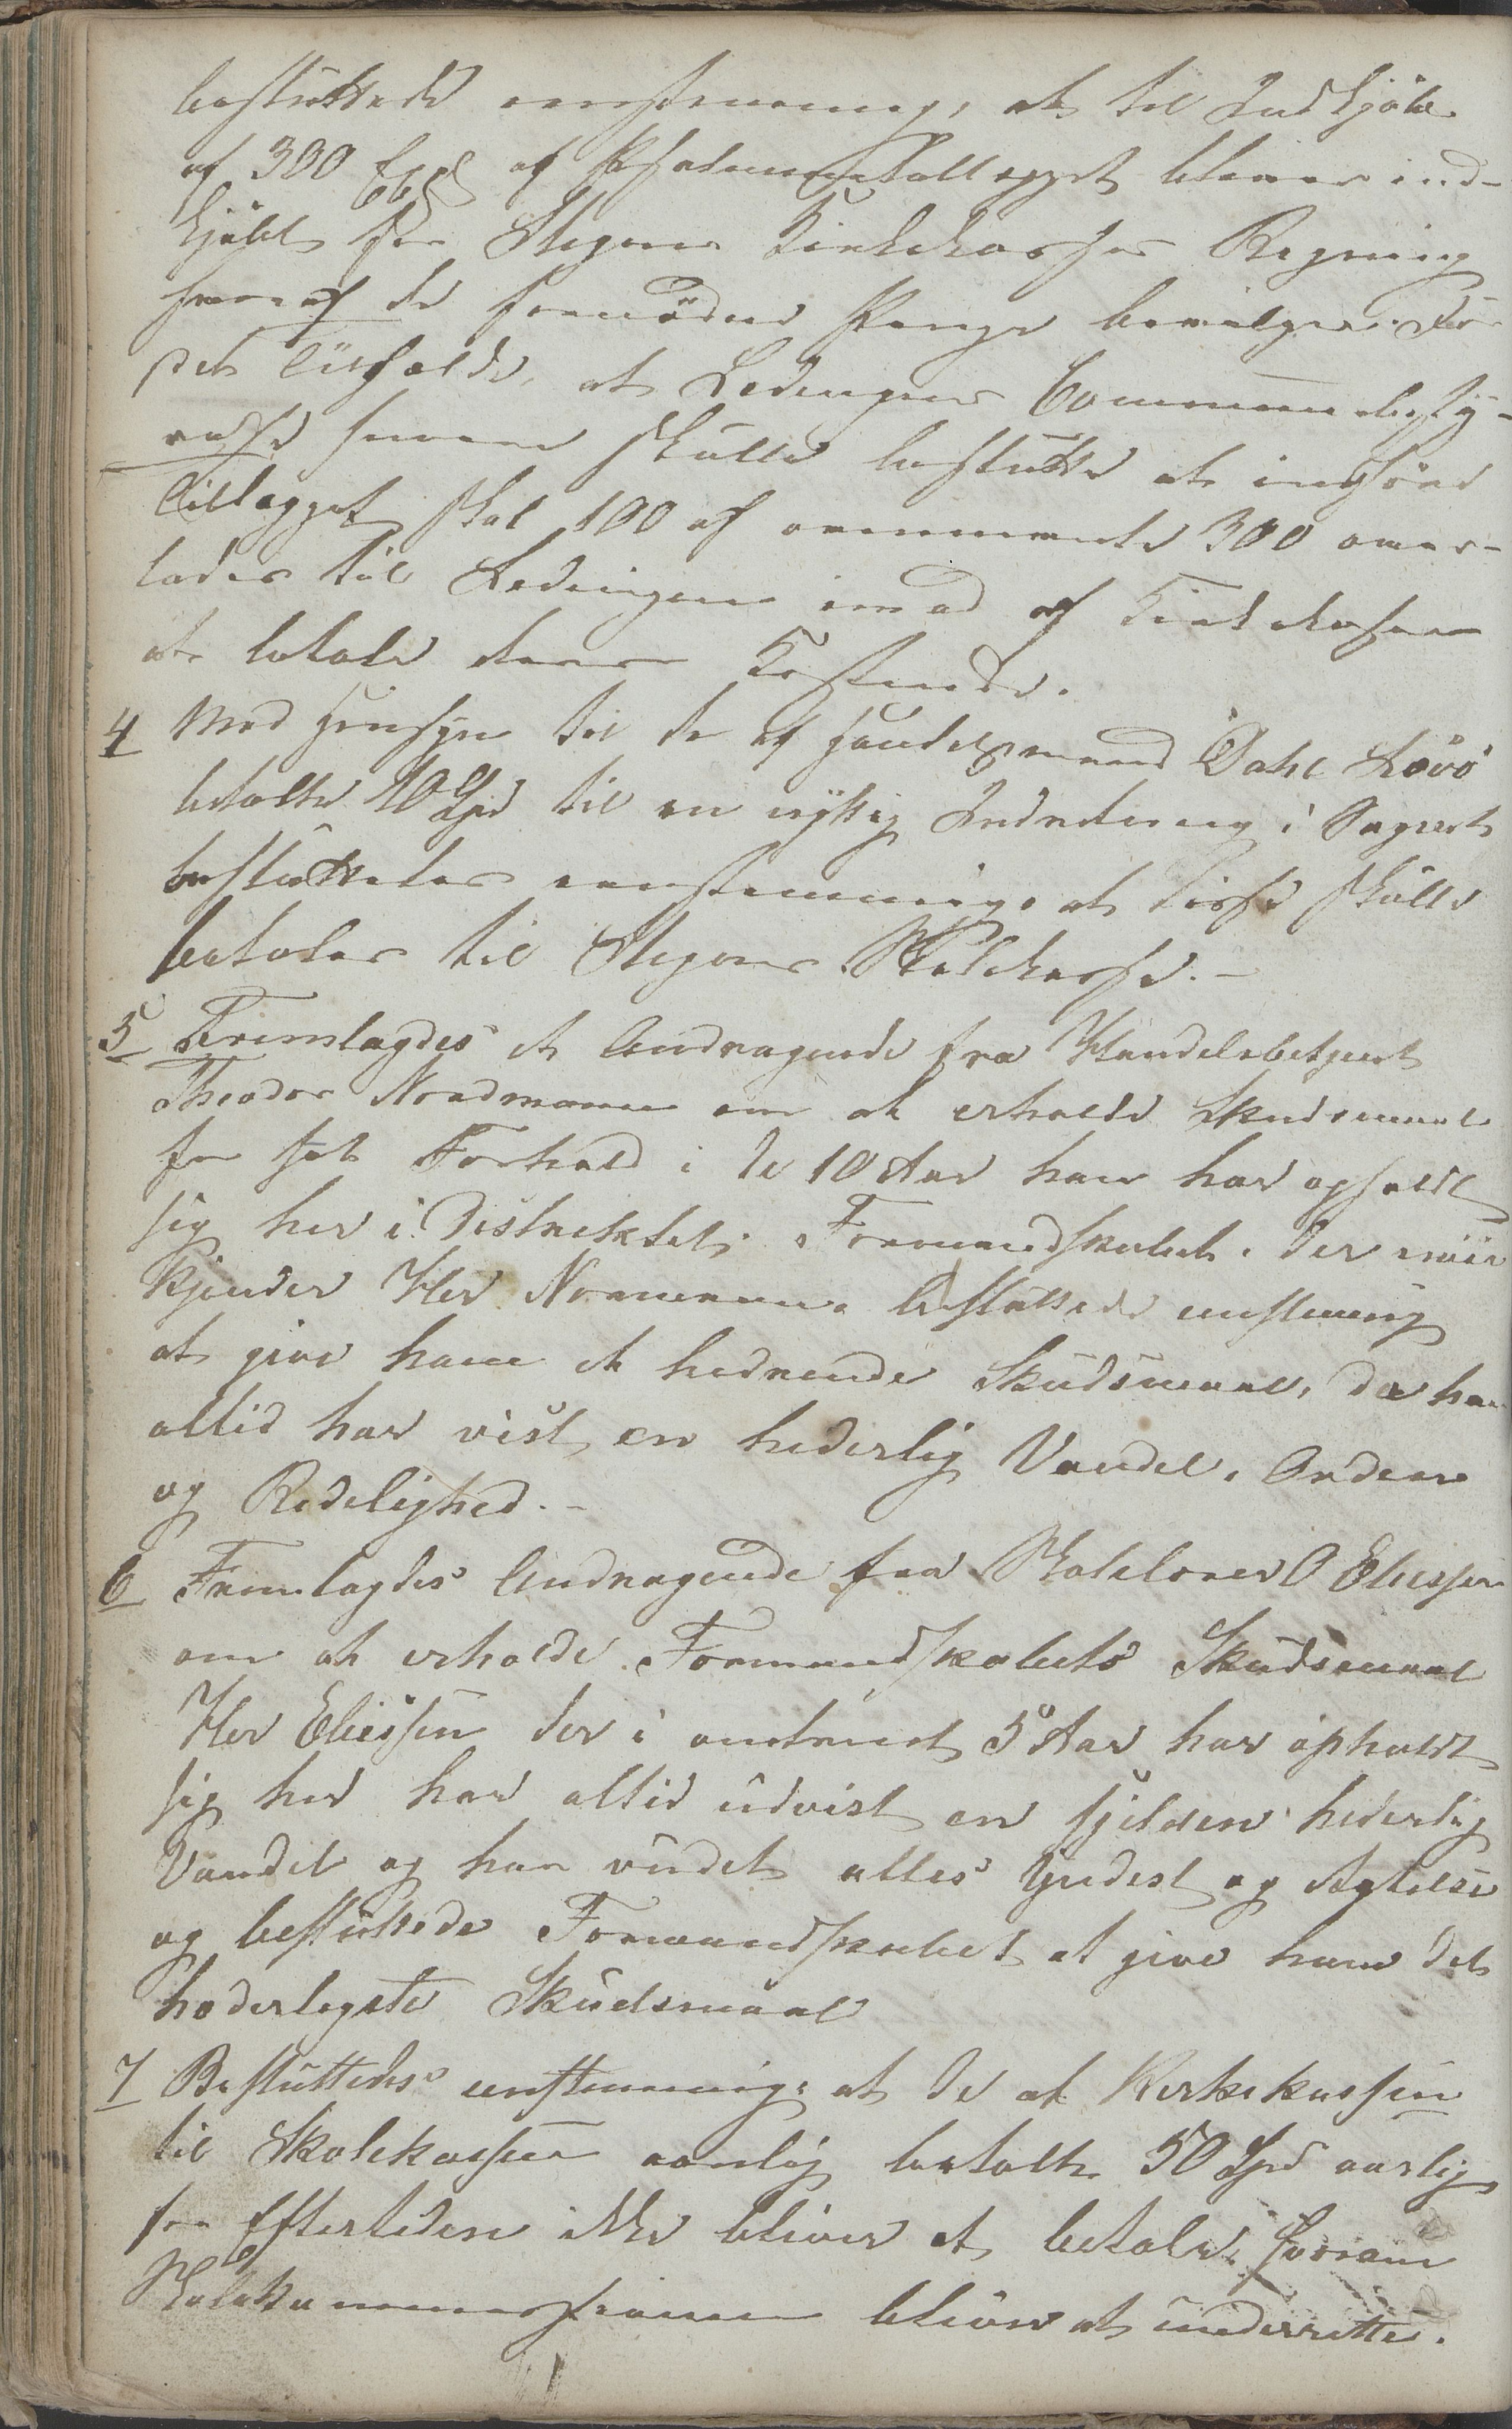 besluttede eenstemmig, at til Indkjøb
af 300 Expl af Psalmetillægget bliver ind-
kjøbt for Stegens Kirkekasses Regning
hvoraf de fornødne Penge bevilges. For
det Tilfælde, at Ledingens Communebesty-
relse senere skulle beslutte at indføre
Tillægget skal 100 af ovennævnte 300 over-
lades til Ledingen imod af Kirkekassen
at betale deres Kostende.
4 Med Hensyn til de af Handelsmand Dahl Løvø
betalte 10 Spd til en nyttig Indretning i Sognet
besluttedes eenstemmig, at disse skulle
betales til Stegens Skolekasse. -
5 Fremlagdes et Andragende fra Handelsbetjent
Theodor Nordmann om at erholde Skudsmaal
for sit Forhold i de 10 Aar han har opholdt
sig her i Distriktet. Formandskabet, der nøie
kjender Her Normann, besluttede eenstemmig
at give ham et hædrende Skudsmaal, da han
altid har vist en hæderlig Vandel, Orden
og Redelighed. -
6 Fremlagdes Andragende fra Skolelærer O Eliessen
om at erholde Formandskabets Skudsmaal
Her Eliessen der i omtrent 5 Aar har opholdt
sig her har altid udvist en sjelden hæderlig
Vandel og har vundet alles Yndest og Agtelse
og besluttede Formandskabet at give ham det
hæderligste Skudsmaal
7 Besluttedes enstemmig, at de af Kirkekassen
til Skolekassen aarlig betalte 50 Spd aarlig
for Eftertiden ikke bliver at betale, hvorom
Skolekommissionen bliver at underrette.